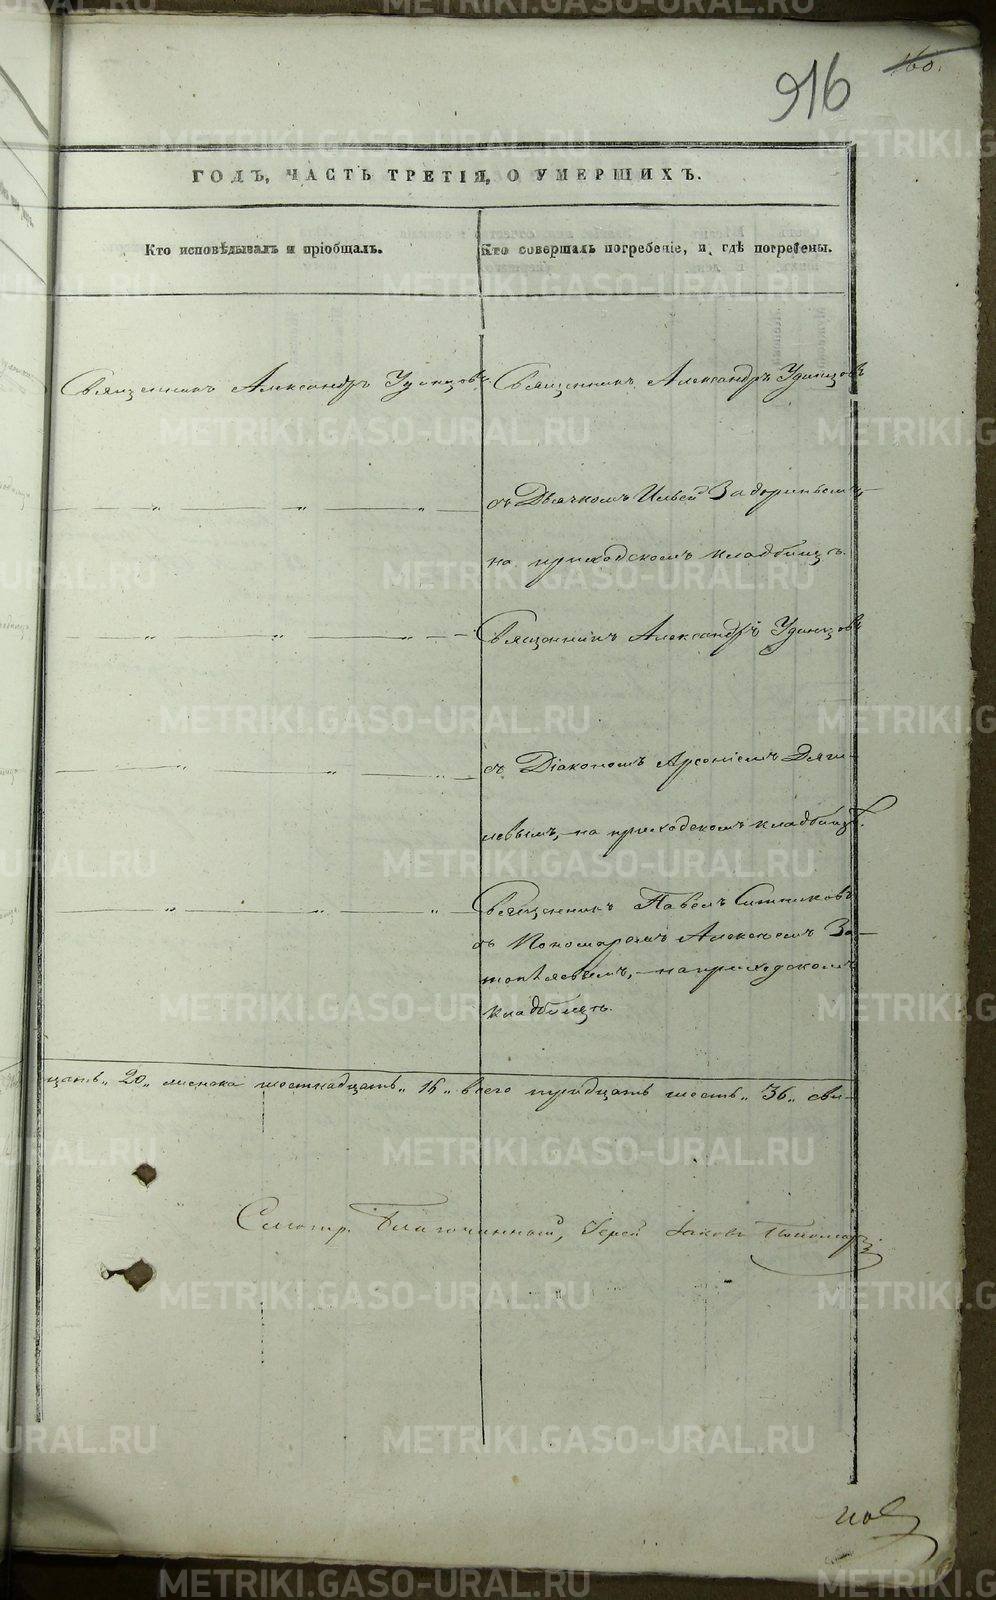 916
160.
ГОДЪ, ЧАСТЬ ТРЕТІЯ, О УМЕРШИХЪ.
Кто исповѣдывалъ и пріобщалъ.
Кто совершалъ погребеніе, и гдѣ погребены.
Священникъ Александръ Удинцовъ
Священникъ Александръ Удинцовъ
съ Дьячкомъ Ильей Задоринымъ,
на приходскомъ кладбищѣ.
Священникъ Александръ Удинцовъ
съ Діакономъ Арсеніемъ Дяги-
левымъ, на приходскомъ кладбищѣ.
Священникъ Павелъ Ситниковъ
съ Пономаремъ Алексѣемъ За-
топляевымъ, на приходскомъ
кладбищѣ.
цать „20„ женска шестнадцать „16„ всего тридцать шесть „36„
Смотр. Благочинный, Іерей Іаковъ Пономар
METRIKI.GASO-URAL.RU